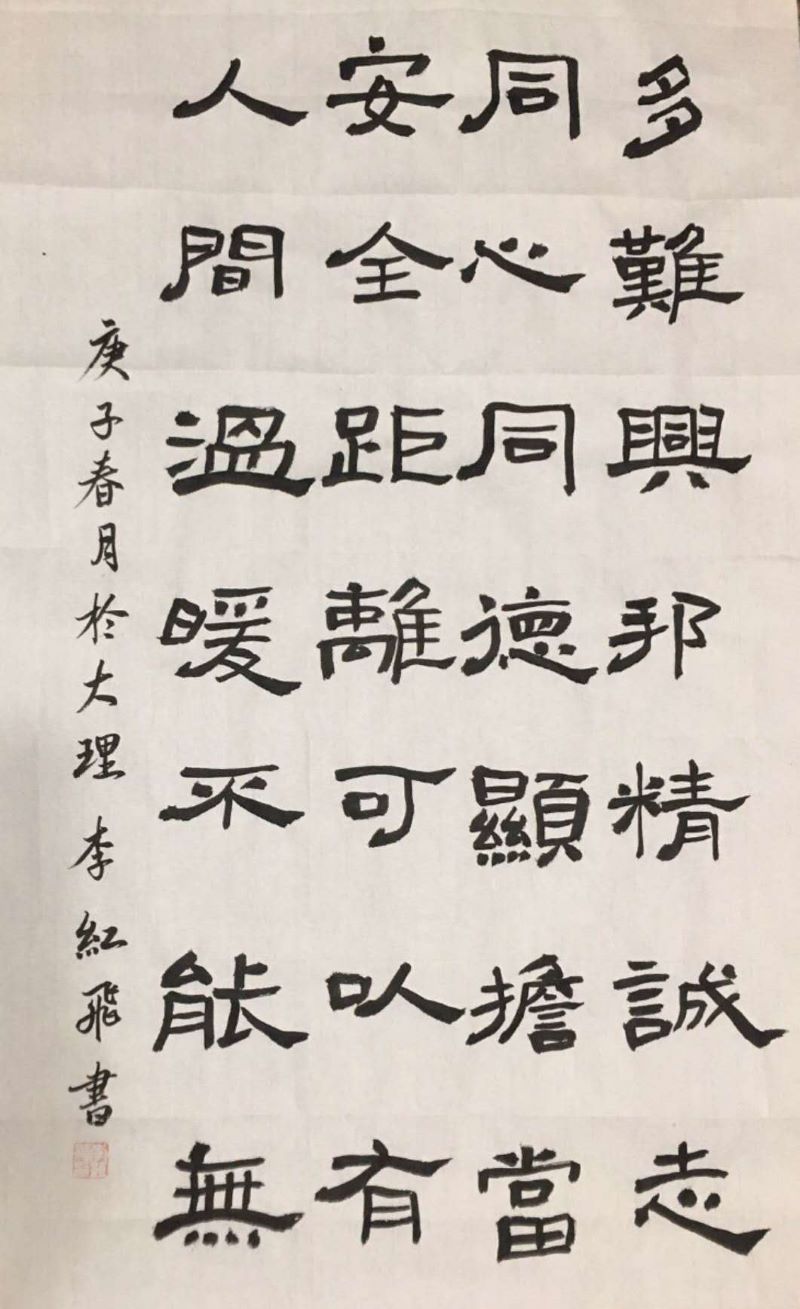 多難興邦精誠志
同心同德顯擔當
安全距離可以有
人間溫暖不能無
庚子春月於大理李紅飛書